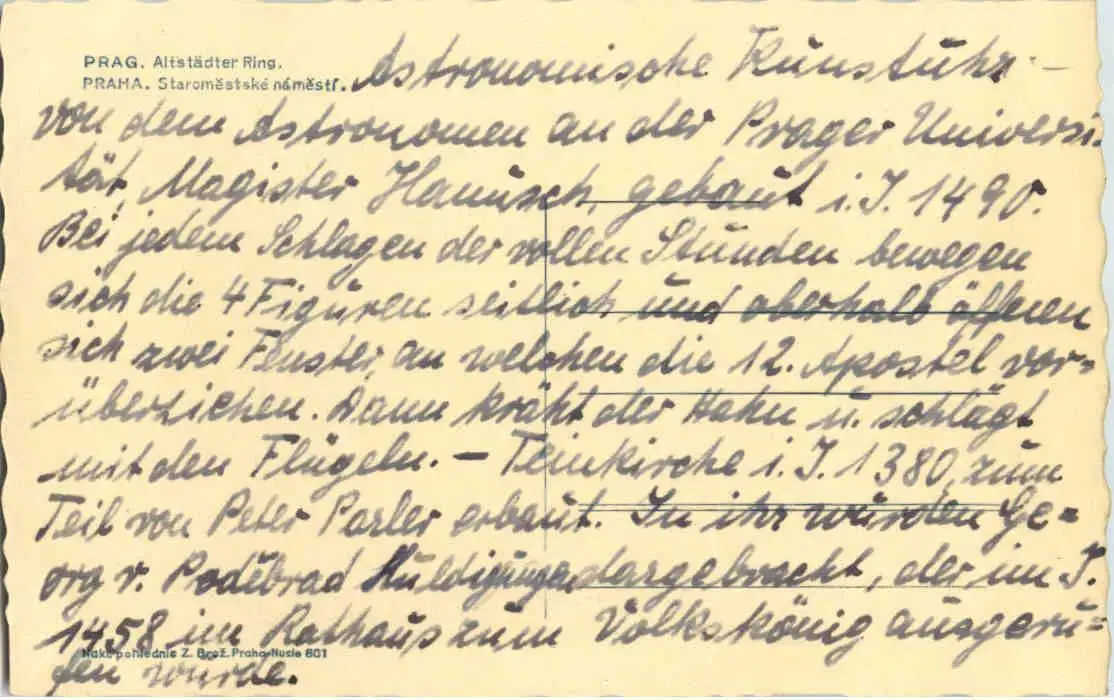 PRAG. Altstädter Ring.
PRAHA. Staroměstské náměstí.
Astronomische Kunstuhr –
von dem Astronomen an der Prager Universi-
tät, Magister Hanusch, gebaut i. J. 1490.
Bei jedem Schlagen der vollen Stunden bewegen
sich die 4 Figuren seitlich und oberhalb öffenen
sich zwei Fenster, an welchen die 12. Apostel vor=
überziehen. Dann kräht der Hahn u. schlägt
mit den Flügeln. – Teinkirche i. J. 1380, zum
Teil von Peter Parler erbaut. In ihr wurden Ge=
org v. Poděbrad Huldigungen dargebracht, der im J.
1458 im Rathaus zum Volkskönig ausgeru=
fen wurde.
Nakl. pohlednic Z. Brož. Praha-Nusle 601